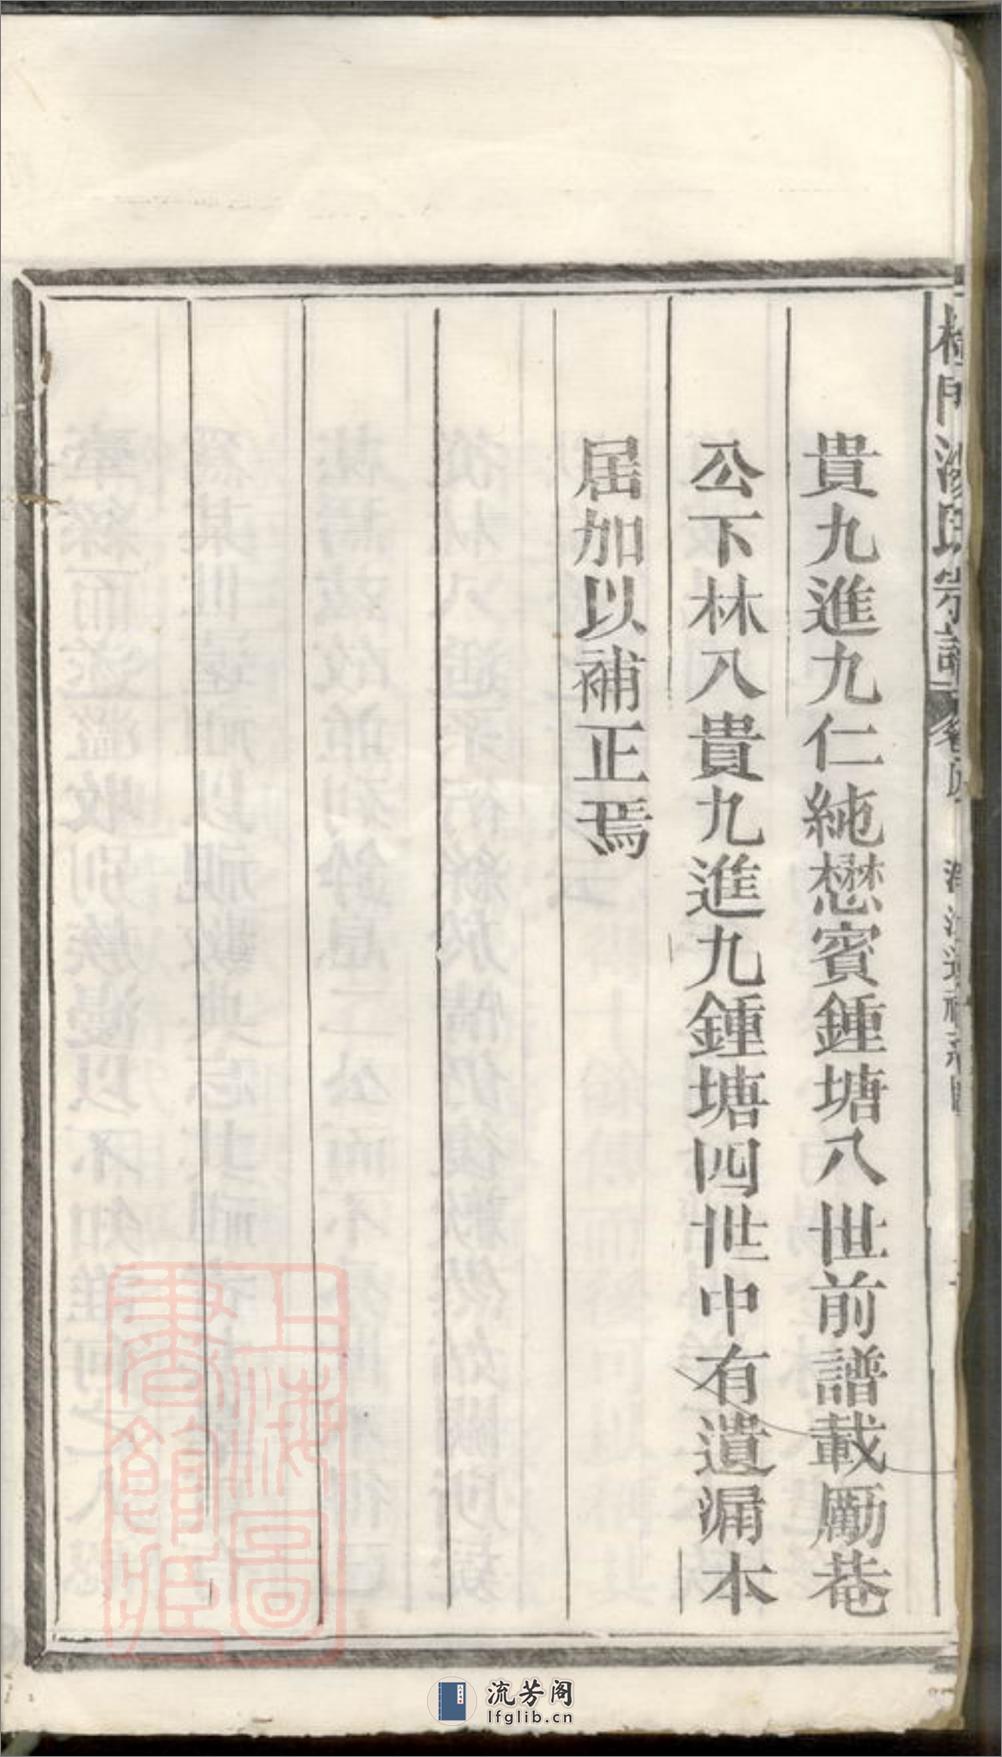 貴九進九仁純懋賓鍾塘八世前譜載勵巷
公下林八貴九進九鍾塘四世中有遺漏本
屆加以補正焉
氏宗譜
上海圖書館藏
流芳阁
lfglib.cn